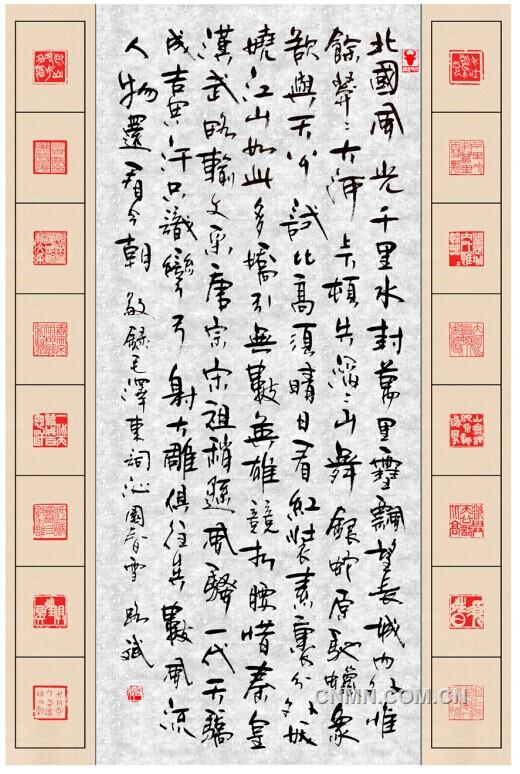 北國風光千里冰封萬里雪飄望長城內外惟
餘莽々大河上下頓失滔々山舞銀蛇原馳蠟象
欲與天公試比高須晴日看紅裝素裹分外妖
嬈江山如此多嬌引無數英雄競折腰惜秦皇
漢武略輸文采唐宗宋祖稍遜風騷一代天驕
成吉思汗只識彎弓射大雕俱往矣數風流
人物還看今朝 敬錄毛澤東詞沁園春雪 路斌
CNMN.COM.CN